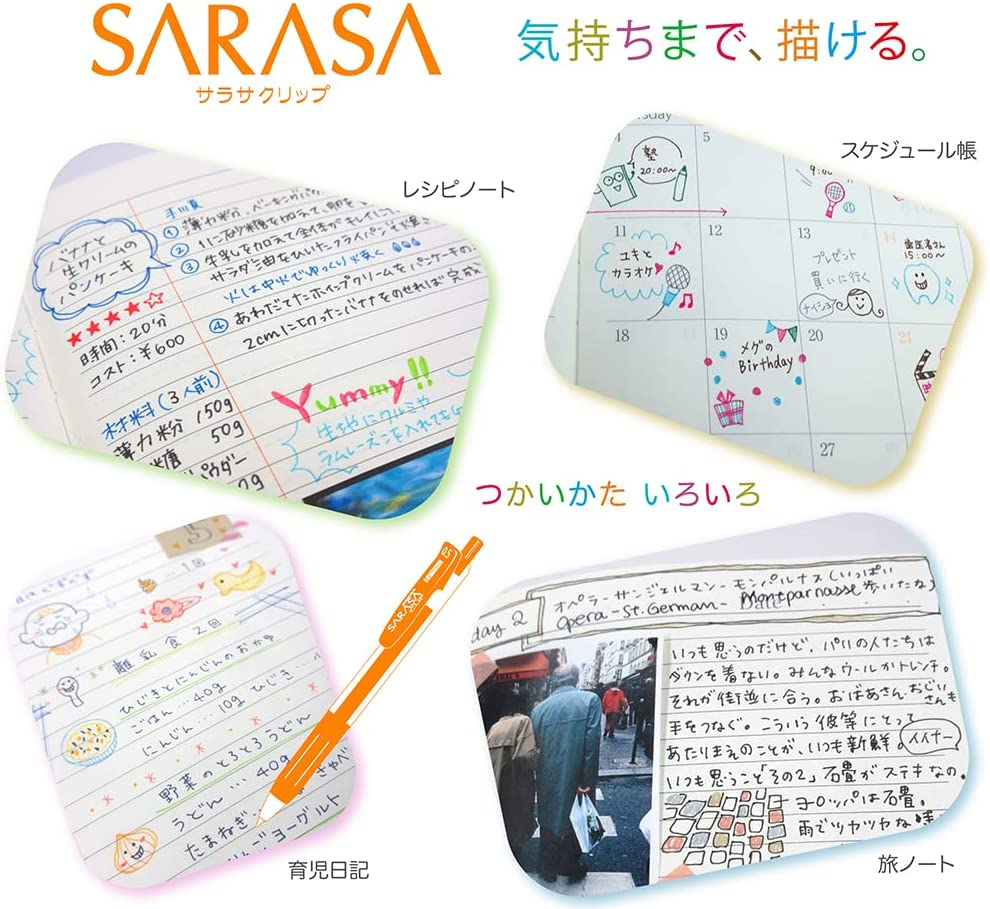 SARASA
サラサクリップ
気持ちまで、描ける。
レシピノート
バナナと
生クリームの
パンケーキ
★★★★☆
時間：20分
コスト：¥600
材料（3人前）
薄力粉 150g
糖 50g
パウダー
2g
手順
① 薄力粉、ベーキングパ
② 1に砂糖を加えて
③ 牛乳を加えて全体がキレイに
サラダ油をひいたフライパンで
火は中火でゆっくり焼く
④ あわだてたホイップクリームをパンケーキの
2cmに切ったバナナをのせれば完成
Yummy!!
生地にクルミや
ラムレーズンを入れても
スケジュール帳
sday
4
塾
20:00~
5
9:00
11
ユキと
カラオケ
12
13
プレゼント
買いに行く
ナイショ
14
歯医者さん
15:00~
18
19
メグの
Birthday
20
21
27
つかいかた いろいろ
5
1回
離乳食 2回
ひじきとにんじんのおかゆ
ごはん…40g ひじき…
にんじん…10g
野菜のとろとろうどん
うどん…40g きゃべ
たまねぎ…
ヨーグルト
SARASA
0.5
育児日記
day 2
オペラーサンジェルマンーモンパルナス（いっぱい
歩いたな）
Opera-St.German-Montparnasse
Date
いつも思うのだけど、パリの人たちは
ダウンを着ない。みんなウールかトレンチ。
それが街並に合う。おばあさん、おじいさんも
手をつなぐ。こういう彼等にとって
あたりまえのことが、いつも新鮮。イイナー
いつも思うこと「その2」石畳がステキなの。
ヨーロッパは石畳。
雨でツヤツヤな
旅ノート